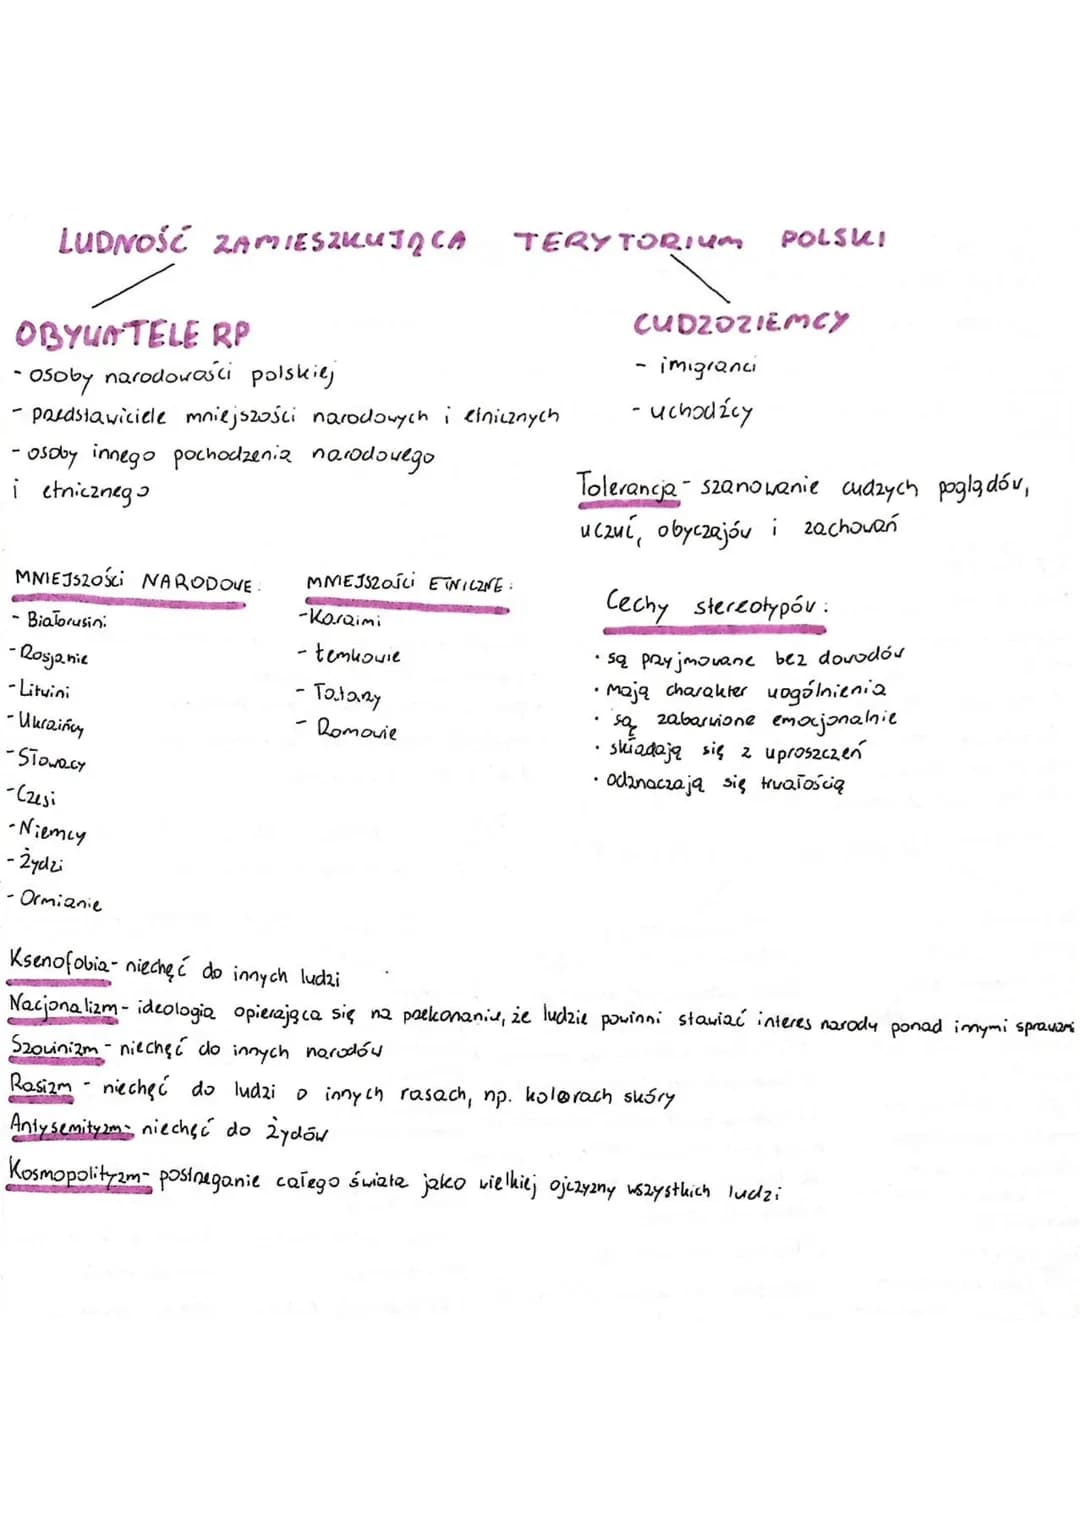 LUDNOŚĆ ZAMIESZKUJĄCA TERYTORIUM POLSKI
OBYWATELE RP
- osoby narodowości polskiej
- przedstawiciele mniejszości narodowych i etnicznych
- osoby innego pochodzenia narodowego
i etnicznego
CUDZOZIEMCY
- imigranci
- uchodźcy
Tolerancja - szanowanie cudzych poglądów,
uczuć, obyczajów i zachowań
MNIEJSZOŚCI NARODOWE:
- Białorusini
- Rosjanie
- Litwini
- Ukraińcy
- Słowacy
- Czesi
- Niemcy
- Żydzi
- Ormianie
MNIEJSZOŚCI ETNICZNE:
- Karaimi
- Łemkowie
- Tatarzy
- Romowie
Cechy stereotypów:
• są przyjmowane bez dowodów
• mają charakter uogólnienia
• są zabarwione emocjonalnie
• składają się z uproszczeń
• odznaczają się trwałością
Ksenofobia - niechęć do innych ludzi
Nacjonalizm - ideologia opierająca się na przekonaniu, że ludzie powinni stawiać interes narodu ponad innymi sprawami
Szowinizm - niechęć do innych narodów
Rasizm - niechęć do ludzi o innych rasach, np. kolorach skóry
Antysemityzm - niechęć do żydów
Kosmopolityzm - postrzeganie całego świata jako wielkiej ojczyzny wszystkich ludzi